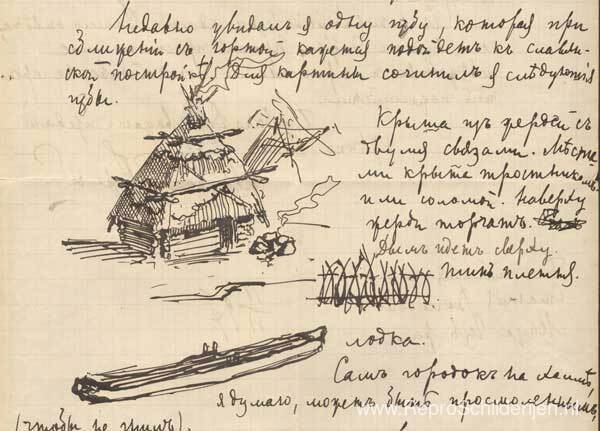 Недавно увидалъ я одну избу, которая при
сближеніи съ юртой кажется подойдетъ къ славян-
ской постройкѣ. Для картины сочинилъ я слѣдующія
избы.
Крыша изъ жердей съ
двумя связами. Мѣста-
ми крыта тростникомъ
или соломой. Наверху
жерди торчатъ.
Дымъ идетъ сверху.
Типъ плетня.
лодка.
Самъ городокъ на холмѣ,
я думаю, можетъ быть просмоленнымъ,
(чтобы не гнилъ).
www.ReproSchilderijen.nl